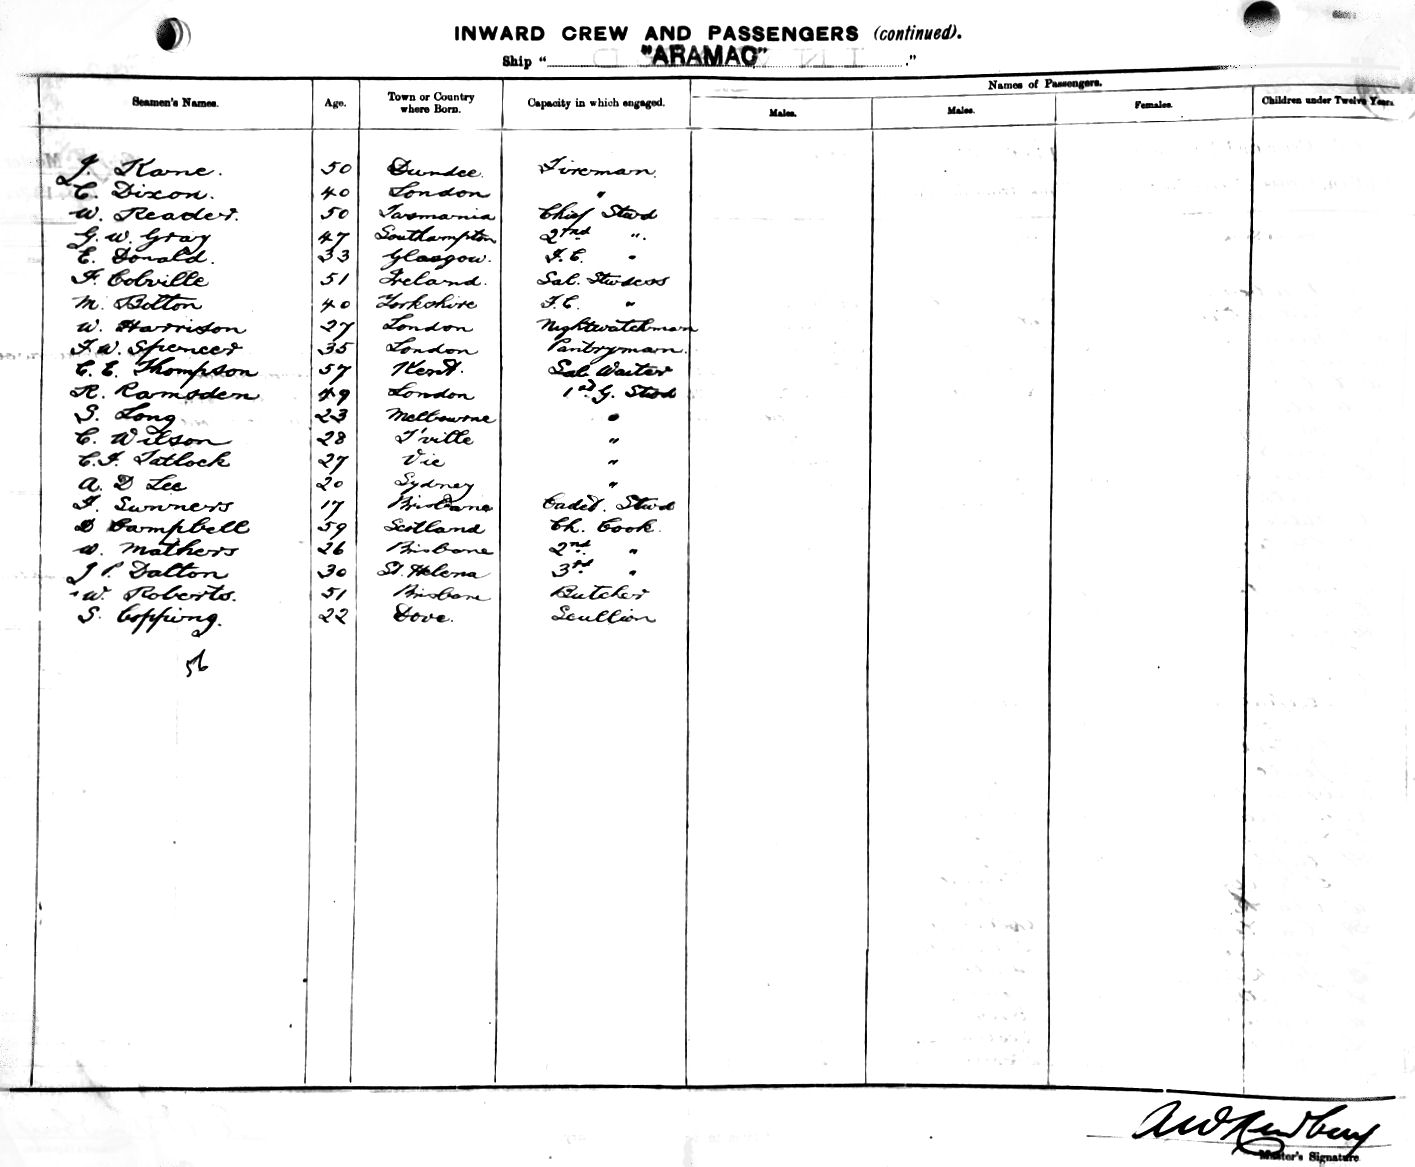 INWARD CREW AND PASSENGERS (continued).
Ship "ARAMAC"
Seamen's Names. Age. Town or Country where Born. Capacity in which engaged. Names of Passengers.
Males. Males. Females. Children under Twelve Years.
J. Kane. 50 Dundee. Fireman.
C. Dixon. 40 London "
W. Reader. 50 Tasmania Chief Stwd
G. W. Gray 47 Southampton 2nd ".
E. Donald. 33 Glasgow. F.C. "
F. Colville 51 Ireland. Sal. Stwdess
M. Bolton 40 Yorkshire F.C. "
W. Harrison 27 London Nightwatchman
F. W. Spencer 35 London Pantryman.
C. E. Thompson 57 Kent. Sal. Waiter
R. Ramsden 49 London G. Stwd
S. Long 23 Melbourne "
C. Wilson 28 T'ville "
C. F. Tatlock 27 Vic "
A. D Lee 20 Sydney "
F. Sumners 17 Brisbane Cadet. Stwd
D Campbell 59 Scotland Ch. Cook.
W. Mathers 26 Brisbane 2nd "
J P. Dalton 30 St. Helena 3rd "
W. Roberts. 51 Brisbane Butcher
S. Copping. 22 Dove. Scullion
56
Master's Signature